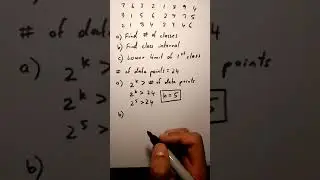 7 6 3 2 1 8 9 4
3 1 5 6 2 7 3 5
2 1 3 4 2 4 4 6
a) Find # of classes
b) Find class interval
c) Lower limit of 1st class
# of data points = 24
a) 2^k > # of data points
2^k > 24 k = 5
2^5 > 24
b)